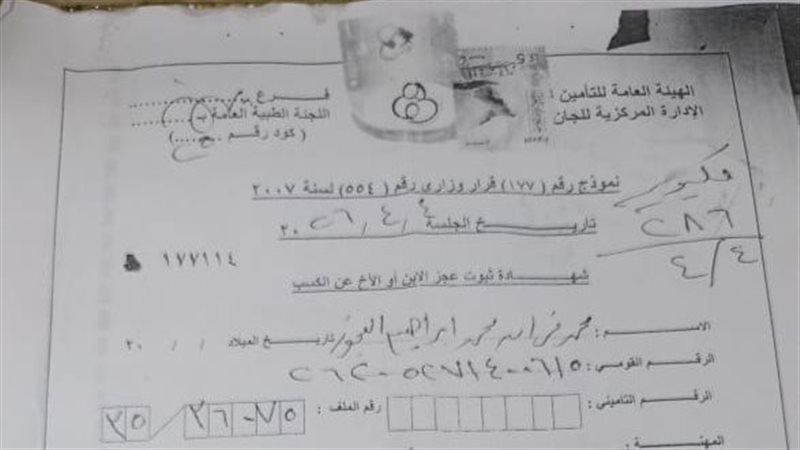 الهيئة العامة للتأمين
الإدارة المركزية للجان
فرع
اللجنة الطبية العامة ب
(كود رقم ... ح ...)
نموذج رقم (١٧٧) قرار وزارى رقم (٥٥٤) لسنة ٢٠٠٧
تاريخ الجلسة ٤ / ٤ / ٢٠٢٦
٢٨٦
٤/٤
١٧٧١١٤
شهادة ثبوت عجز الابن أو الأخ عن الكسب
الاسم : محمد محمد ابراهيم تاريخ الميلاد / / ٢٠
الرقم القومى :
الرقم التامينى : رقم الملف : ٢٥ / ٢٦٠٧٥
المهنة :